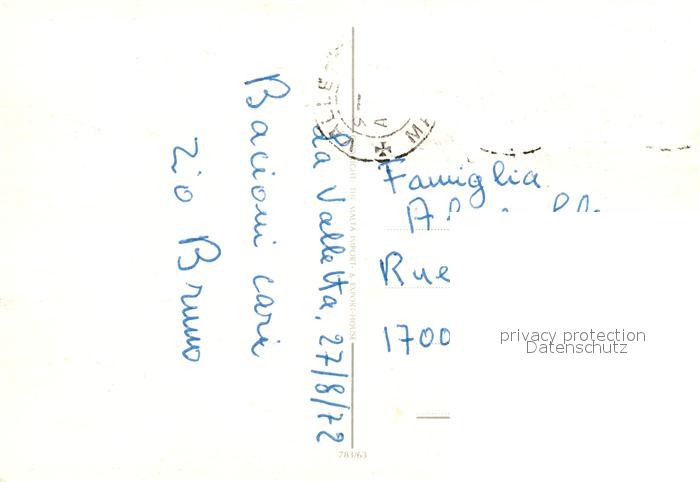 La Valletta, 27/8/72
Bacioni cari
Zio Bruno
Famiglia
Rue
1700
THE MALTA IMPORT- & EXPORT-HOUSE
783/63
privacy protection
Datenschutz